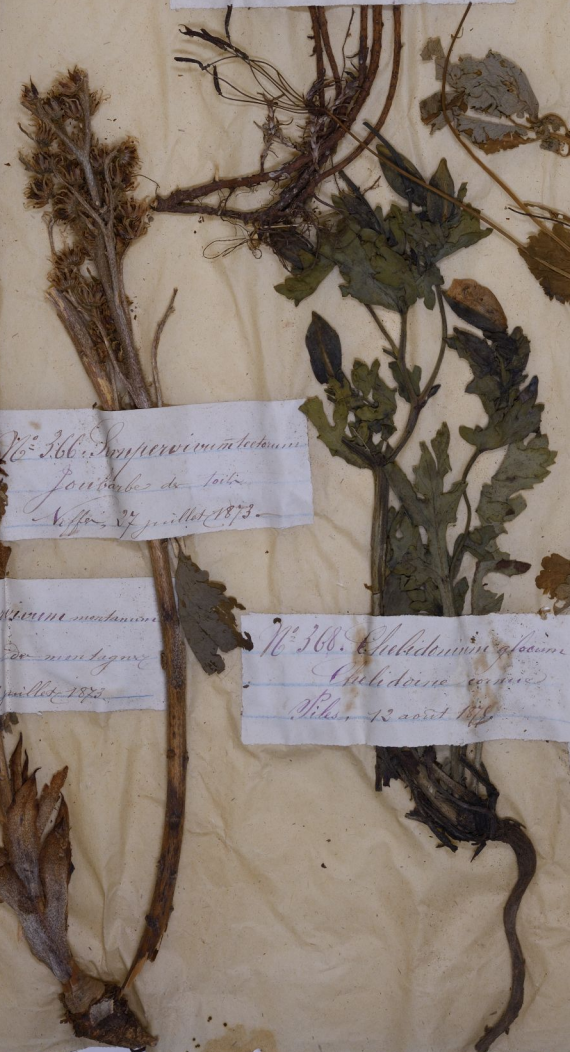 No. 366. Sempervivum tectorum
Joubarbe de toits
27 juillet 1873.
montanum
de montagne
juillet 1873
No. 368. Chelidonium glaucum
Chelidoine cornue
12 août